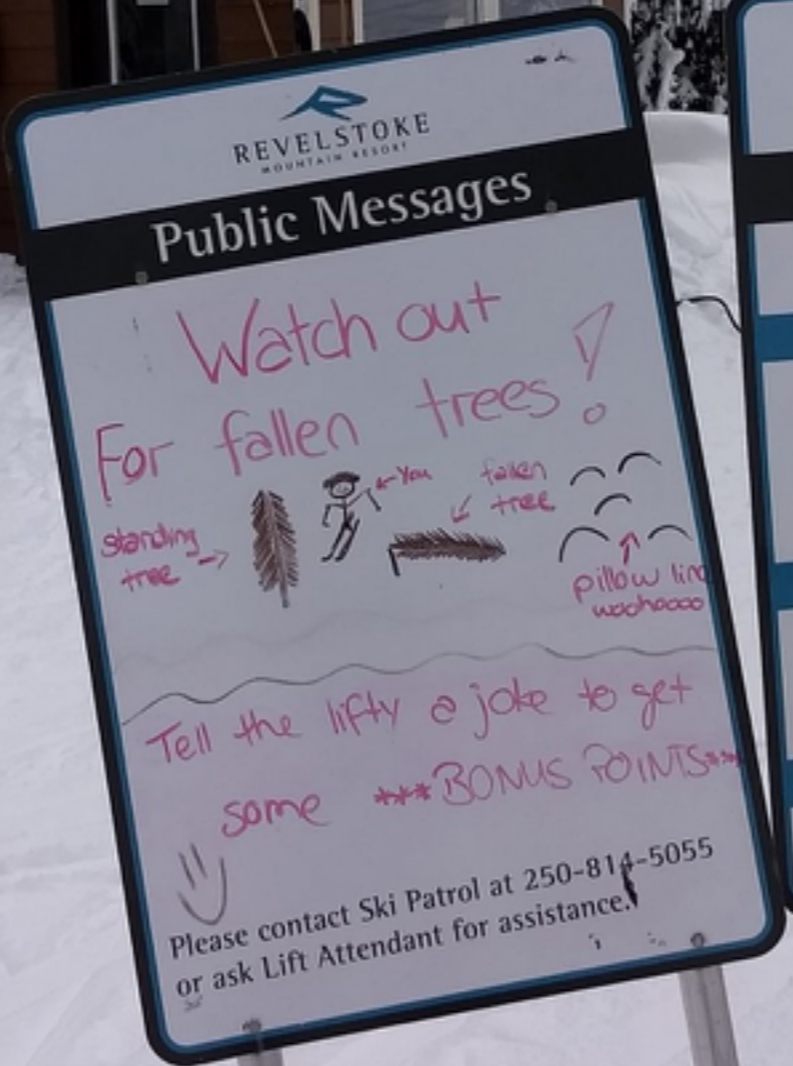 REVELSTOKE
MOUNTAIN RESORT
Public Messages
Watch out
For fallen trees!
standing
tree →
← You
fallen
tree
pillow line
woohoooo
Tell the lifty a joke to get
some *** BONUS POINTS***
Please contact Ski Patrol at 250-814-5055
or ask Lift Attendant for assistance.